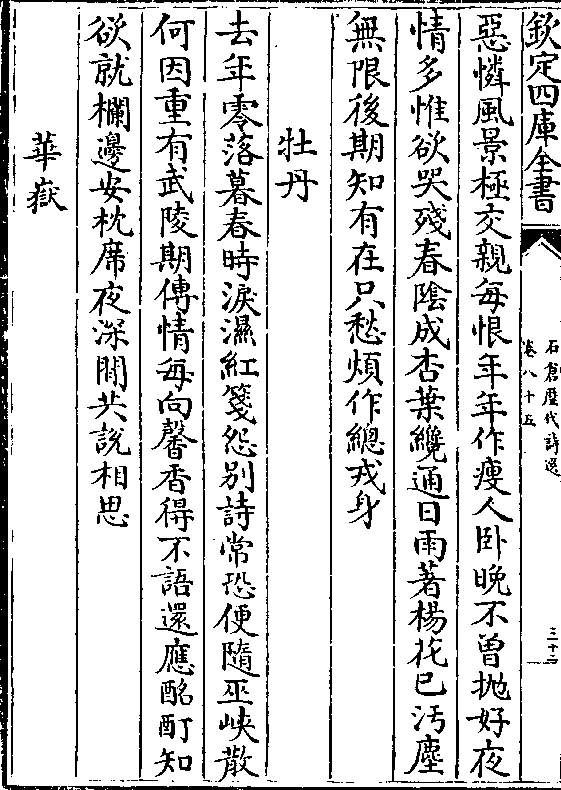 欽定四庫全書
石倉歷代詩選
卷八十五
三十二
惡憐風景極交親每恨年年作瘦人卧晚不曾抛好夜
情多惟欲哭殘春陰成杏葉纔通日雨著楊花已汚塵
無限後期知有在只愁煩作總戎身
牡丹
去年零落暮春時淚濕紅箋怨别詩常恐便隨巫峽散
何因重有武陵期傳情每向馨香得不語還應酩酊知
欲就欄邊安枕席夜深閒共說相思
華嶽